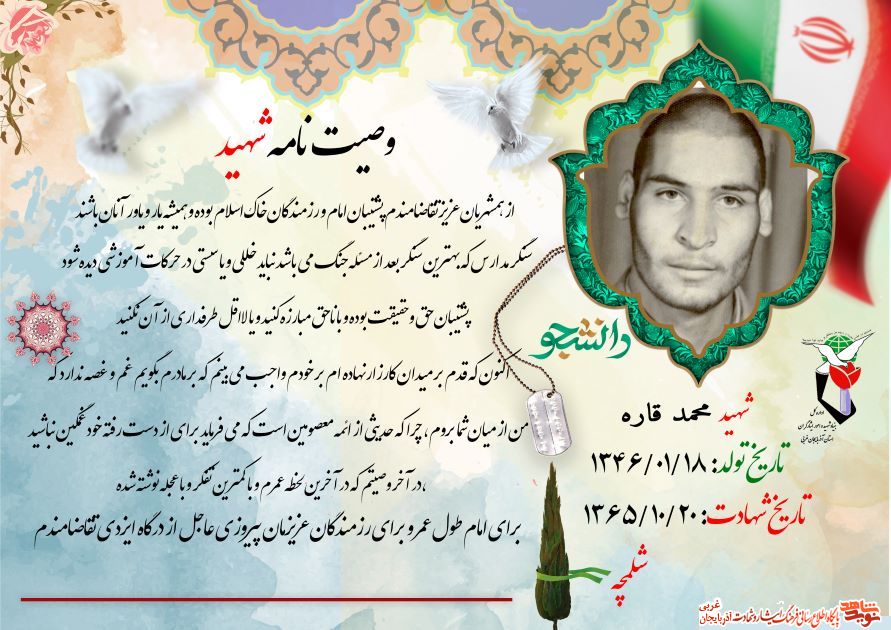 وصیت نامه شهید
از همشهریان عزیز تقاضامندم پشتیبان امام و رزمندگان خاک اسلام بوده و همیشه یار و یاور آنان باشند
سنگر مدارس که بهترین سنگر بعد از مسئله جنگ می باشد نباید خللی و یا سستی در حرکات آموزشی دیده شود
پشتیبان حق و حقیقت بوده و با ناحق مبارزه کنید و یا لااقل طرفداری از آن نکنید
اکنون که قدم بر میدان کارزار نهاده ام بر خودم واجب می بینم که بر مادرم بگویم غم و غصه ندارد که
من از میان شما بروم ، چرا که حدیثی از ائمه معصومین است که می فرماید برای از دست رفته خود غمگین نباشید
،در آخر وصیتم که در آخرین لحظه عمرم و با کمترین تفکر و با عجله نوشته شده
برای امام طول عمر و برای رزمندگان عزیزمان پیروزی عاجل از درگاه ایزدی تقاضامندم
دانشجو
شهید محمد قاره
تاریخ تولد: ۱۳۴۶/۰۱/۱۸
تاریخ شهادت: ۱۳۶۵/۱۰/۲۰
شلمچه
اداره کل
بنیاد شهید و امور ایثارگران
استان آذربایجان غربی
نوید شاهد
پایگاه اطلاع رسانی فرهنگ ایثار و شهادت آذربایجان غربی